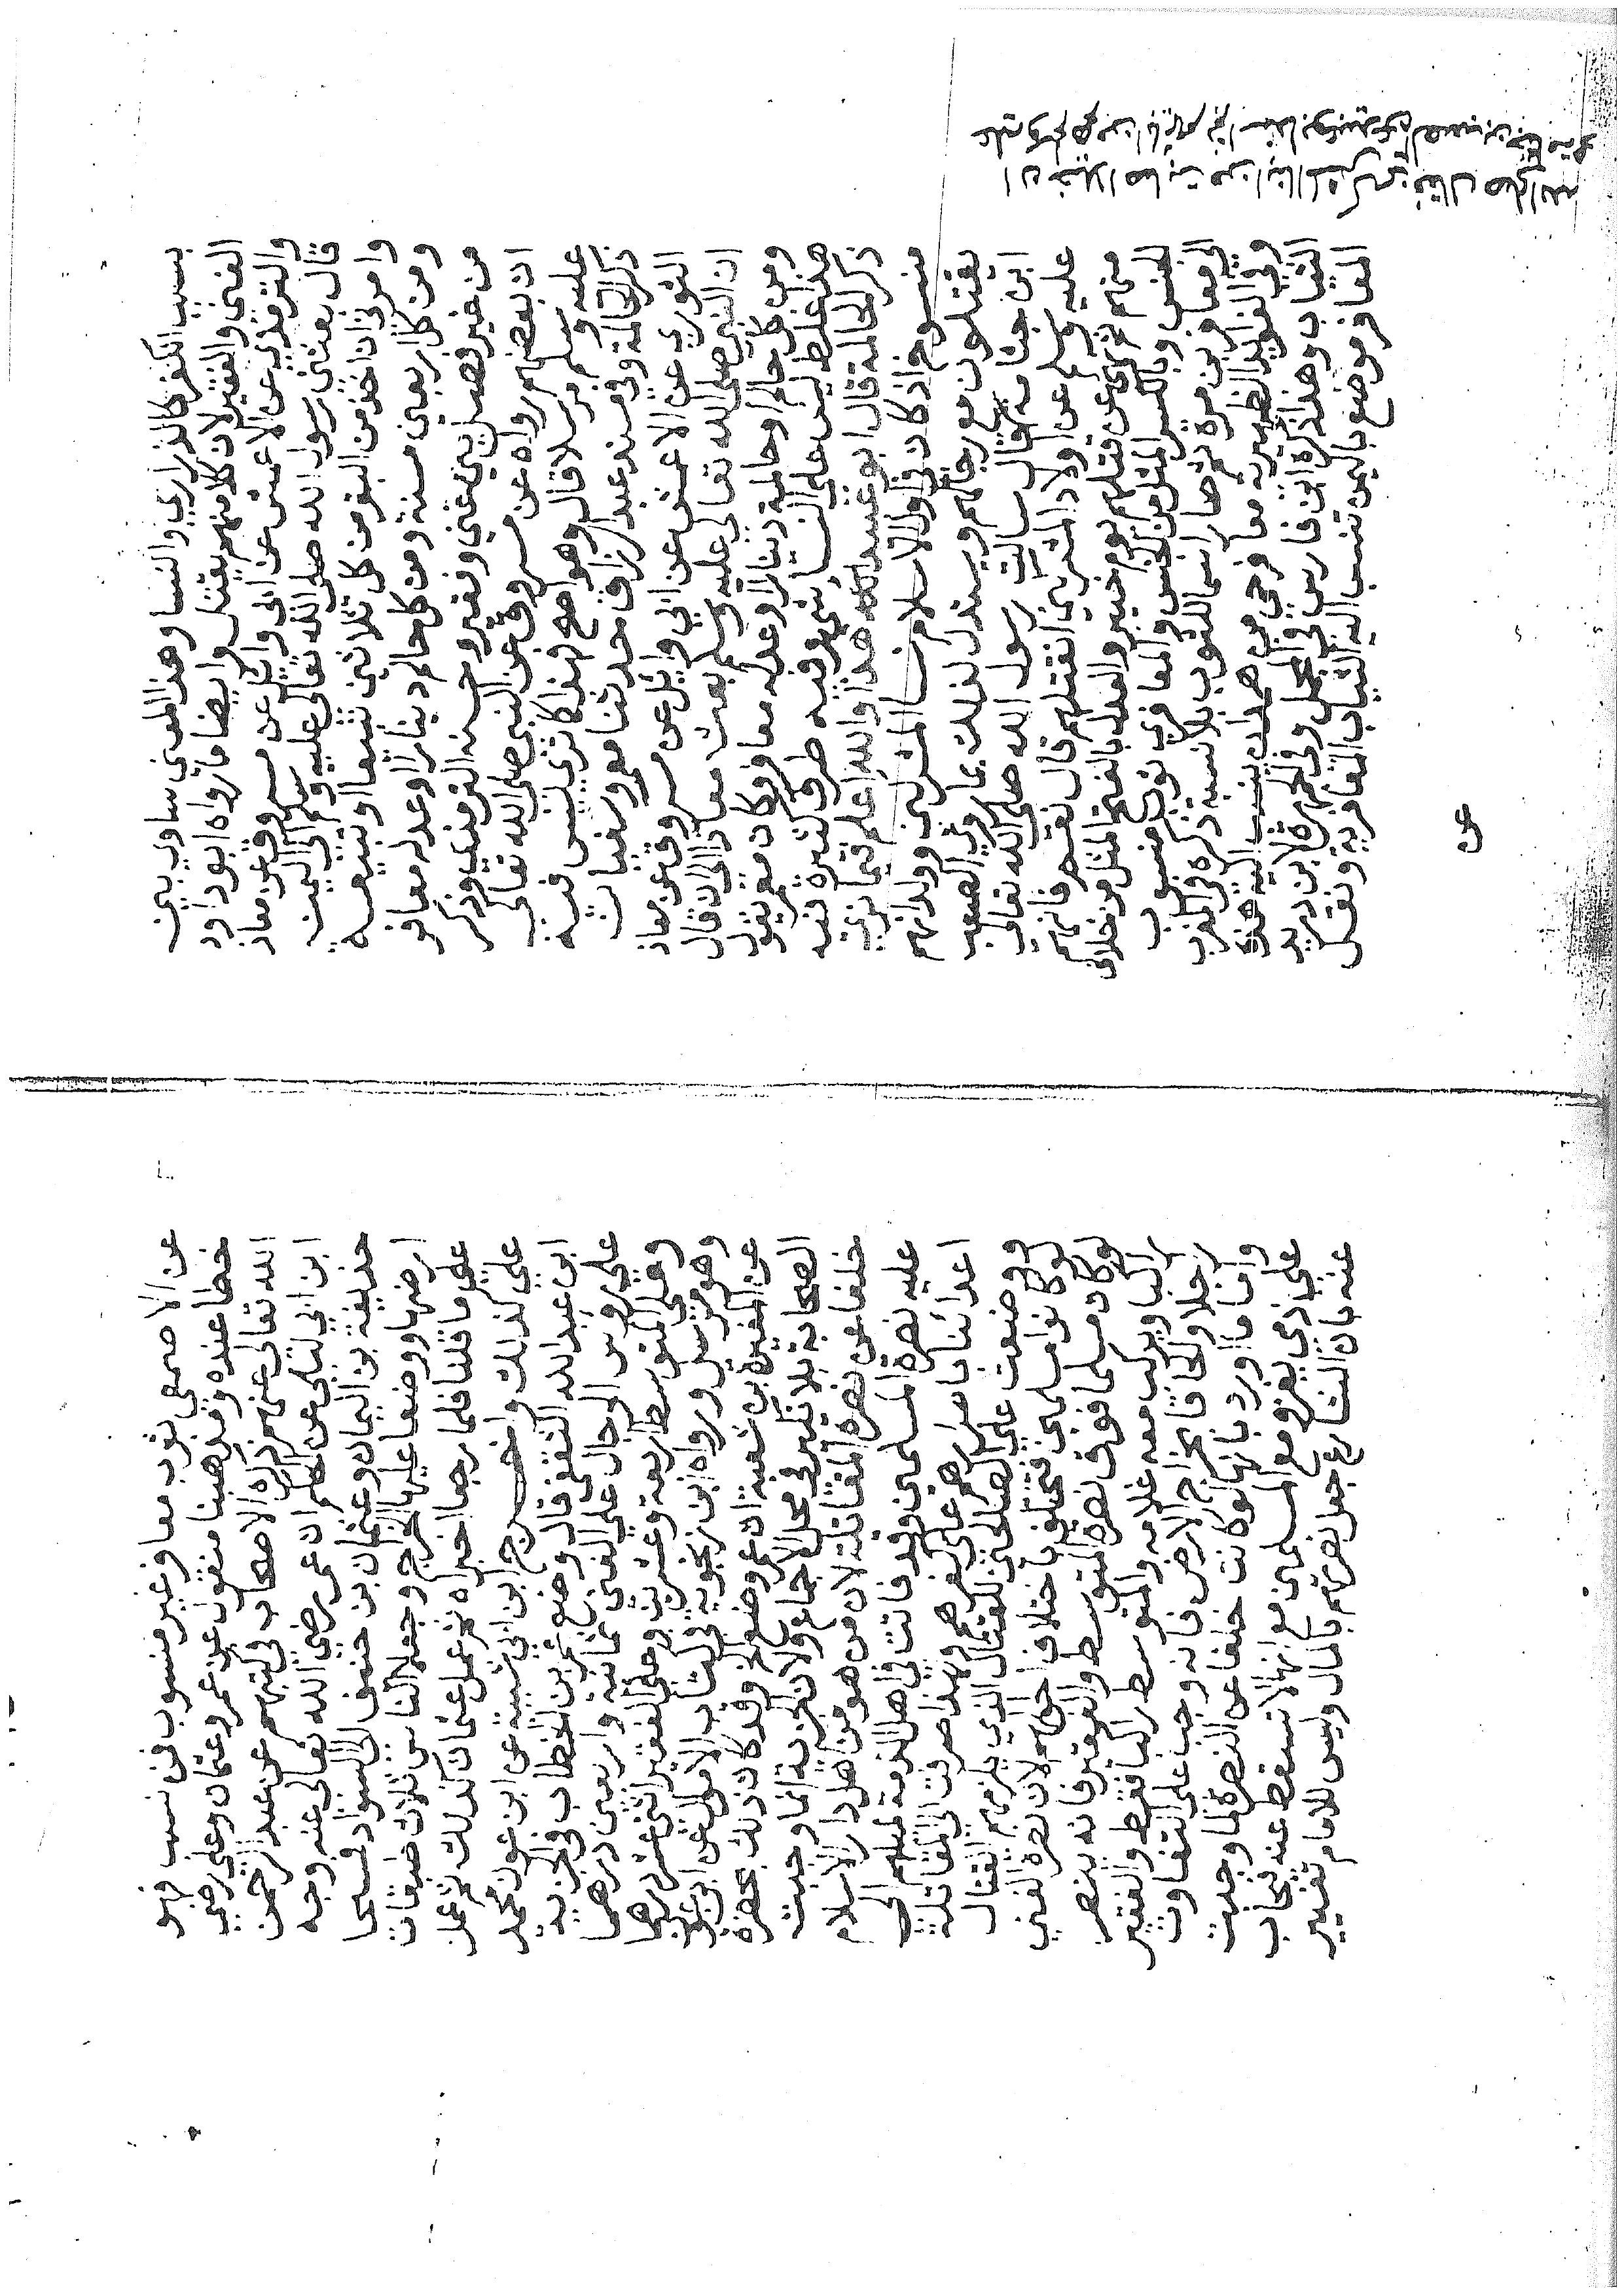 بسبب الكفر كالذراري والنسا وهذا المعنى يساوي بين
الغني والفقير لان كلا منهم يقتل وايضا ما رواه ابو داود
والترمذي عن الاعمش عن ابي وايل عن مسروق عن معاذ
قال بعثني رسول الله صلى الله تعالى عليه وسلم الى اليمن
وامرني ان اخذ من البقر من كل ثلاثين تبيعا او تبيعه
ومن كل اربعين مسنة ومن كل حالم دينارا او عدله معافر
من غير فصل بين غني وفقير وحسنه الترمذي وذكر
ان بعضهم رواه عن مسروق عن النبي صلى الله تعالى
عليه وسلم مرسلا قال وهو اصح فهذا كما ترى ليس فيه
ذكر الحالمة وفي مسند عبد الرزاق حدثنا معمر وسفيان
الثوري عن الاعمش عن ابي وايل عن مسروق عن معاذ
ان النبي صلى الله تعالى عليه وسلم بعث معاذا الى ان قال
ومن كل حالم او حالمة دينارا او عدله معافر وكان معمر يقول
هذا غلط ليس على النسا شي وفيه طرق كثيره فيه
ذكر الحالمة قال ابو عبيد الله هذا والله اعلم فيما نرى
منسوخ اذ كان في اول الاسلام نسا المشركين وولدانهم
يقتلون مع رجالهم ويستدل لذلك بما روي الصعب
ابن جثامه قال سالت رسول الله صلى الله تعالى
عليه وسلم عن اولاد المشركين انقتلهم قال نعم فانهم
منهم ثم نهى عن قتلهم يوم خيبر والعدل بالفتح المثل من خلاف
الجنس وبالكسر المثل من الجنس والمعافري ثوب منسوب
لمعافر بن مرة ثم صار اسما للثوب بلا نسبة ذكره في المغرب
وفي الفوايد الظهيرية معافر حي من همدان ينسب اليه هذه
الثياب وهكذا ذكره ابن فارس في المجمل وفي الجمهرة لابن دريد
المعافر موضع باليمن تنسب اليه الثياب المعافرية ونقل
عن
عن الاصمعي ثوب معافر غير منسوب فمن نسب فهو
خطا عنده ومذهبنا منقول عن عمر وعثمان وعلي رضي
الله تعالى عنهم ذكره الاصحاب في كتبهم عن عبد الرحمن
ابن ابي ليلى عن الحكم ان عمر رضي الله تعالى عنه وجه
حذيفة بن اليمان وعثمان بن حنيف الى السواد فمسحا
ارضها ووضعا عليها الخراج وجعلا الناس ثلاث طبقات
على ما قلنا فلما رجعا اخبراه ثم عمل عثمان كذلك ثم عمل
علي كذلك واخرج ابن ابي شيبة عن ابن عون محمد
ابن عبيد الله الثقفي قال وضع عمر بن الخطاب في الجزية
على روس الرجال على الغني ثمانية واربعين درهما
وعلى المتوسط اربعة وعشرين وعلى الفقير اثني عشر درهما
وهو مرسل ورواه ابن زنجويه في كتاب الاموال عن ابي عون
عن المغيرة بن شعبة ان عمر وضع الخ وقد كان ذلك بحضرة
الصحابة بلا نكير فحل محل الاجماع ولان الجزية انما وجبت
خلفا عن نصرة المقاتلة لان من هو من اهل دار الاسلام
عليه نصرة المسلمين وقد فاتت في اهل الذمة لميلهم الى
اعداينا باصرارهم على كفرهم ولهذا صرفت الى المقاتلة
ووضعت على الصالحين للقتال الذي يلزمهم القتال
لو كانوا مسلمين فتختلف باختلاف احوالهم لان نصرة الغني
لو كان مسلما فوق نصرة المتوسط والفقير فانه ينصر
راكبا ويركب معه غلامه والمتوسط راكبا فقط والفقير
راجلا والحاقا بخراج الارض فانه وجب على التفاوت
واما ما اورد بانها لو كانت خلفا عن النصرة لما وجبت
على ذمي يغزو مع المسلمين مع انها لا تسقط عنه فجاب
عنه بان الشارع جعل نصرتهم بالمال وليس للامام تغيير